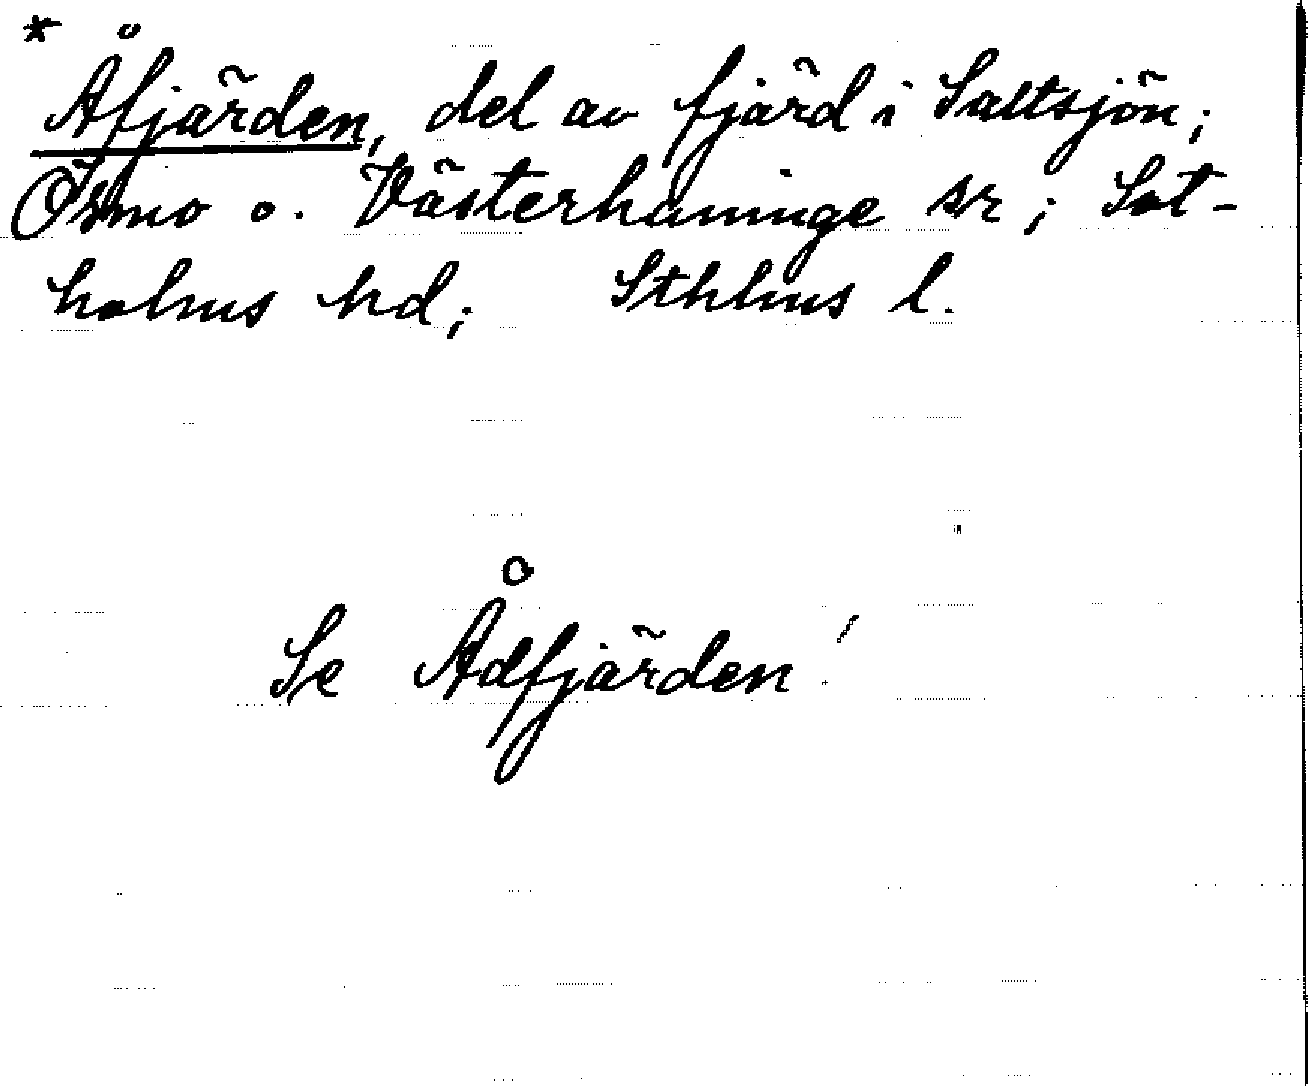 * Åfjärden, del av fjärd i Saltsjön;
Ösmo o. Västerhaninge sr; Sot-
holms hd; Sthlms l.
Se Ådfjärden!